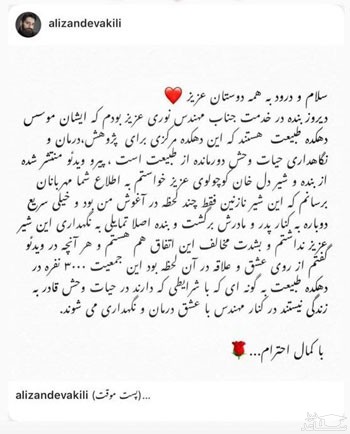 alizandevakili
سلام و درود به همه دوستان عزیز ❤️
دیروز بنده در خدمت جناب مهندس نوری عزیز بودم که ایشان موسس
دهکده طبیعت هستند که این دهکده مرکزی برای پژوهش،درمان و
نگاهداری حیات وحش دورمانده از طبیعت است ، پیرو ویدئو منتشر شده
از بنده و شیر دل خان کوچولوی عزیز خواستم به اطلاع شما مهربانان
برسانم که این شیر نازنین فقط چند لحظه در آغوش من بود و خیلی سریع
دوباره به کنار پدر و مادرش برگشت و بنده اصلا تمایلی به نگهداری این شیر
عزیز نداشتم و بشدت مخالف این اتفاق هم هستم و هر آنچه در ویدئو
گفتم از روی عشق و علاقه در آن لحظه بود این جمعیت ۳۰۰۰ نفره در
دهکده طبیعت به گونه ای که با شرایطی که دارند در حیات وحش قادر به
زندگی نیستند در کنار مهندس با عشق درمان و نگهداری می شوند.
با کمال احترام... 🌹
alizandevakili (پست موقت)...